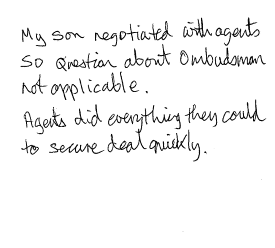 My son negotiated with agents
so question about Ombudsman
not applicable.
Agents did everything they could
to secure deal quickly.